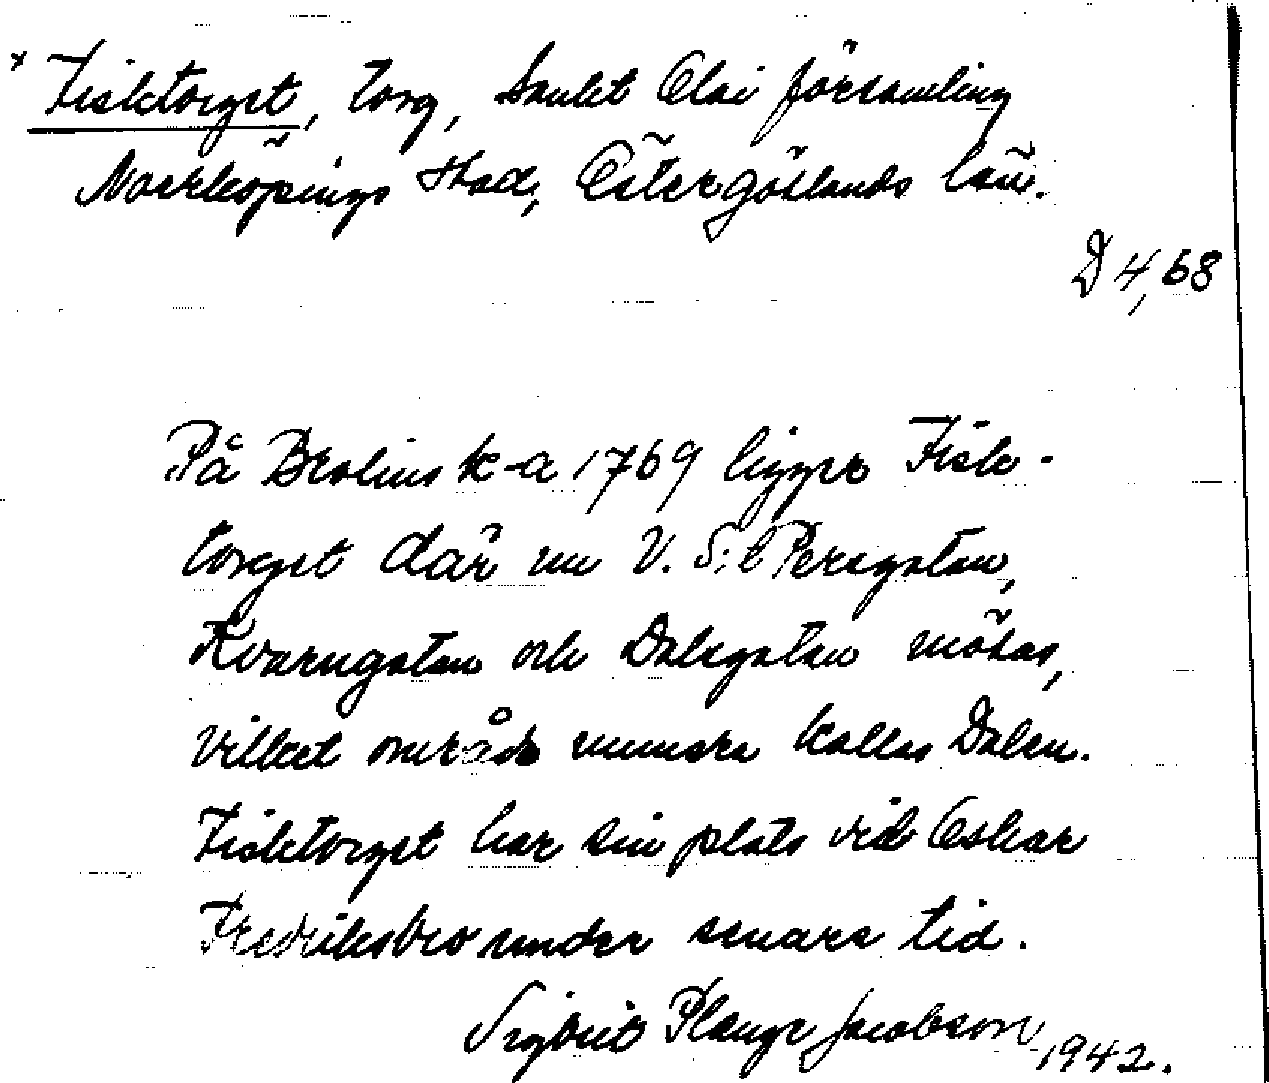 * Fisktorget, torg, Sankt Olai församling
Norrköpings stad, Östergötlands län.
D 4,68
På Brolins k-a 1769 ligger Fisk-
torget där nu V. S:t Persgatan,
Kvarngatan och Dalsgatan mötas,
vilket område numera kallas Dalen.
Fisktorget har sin plats vid Oskar
Fredriksbro under senare tid.
Sigbrit Plænge Jacobson 1942.